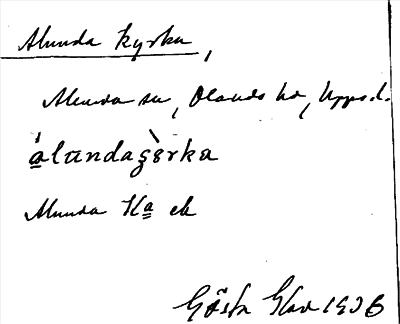 Alunda kyrka,
Alunda sn, Olands hd, Upps. l.
álundaçèrka
Alunda Ka ek
Gösta 1936